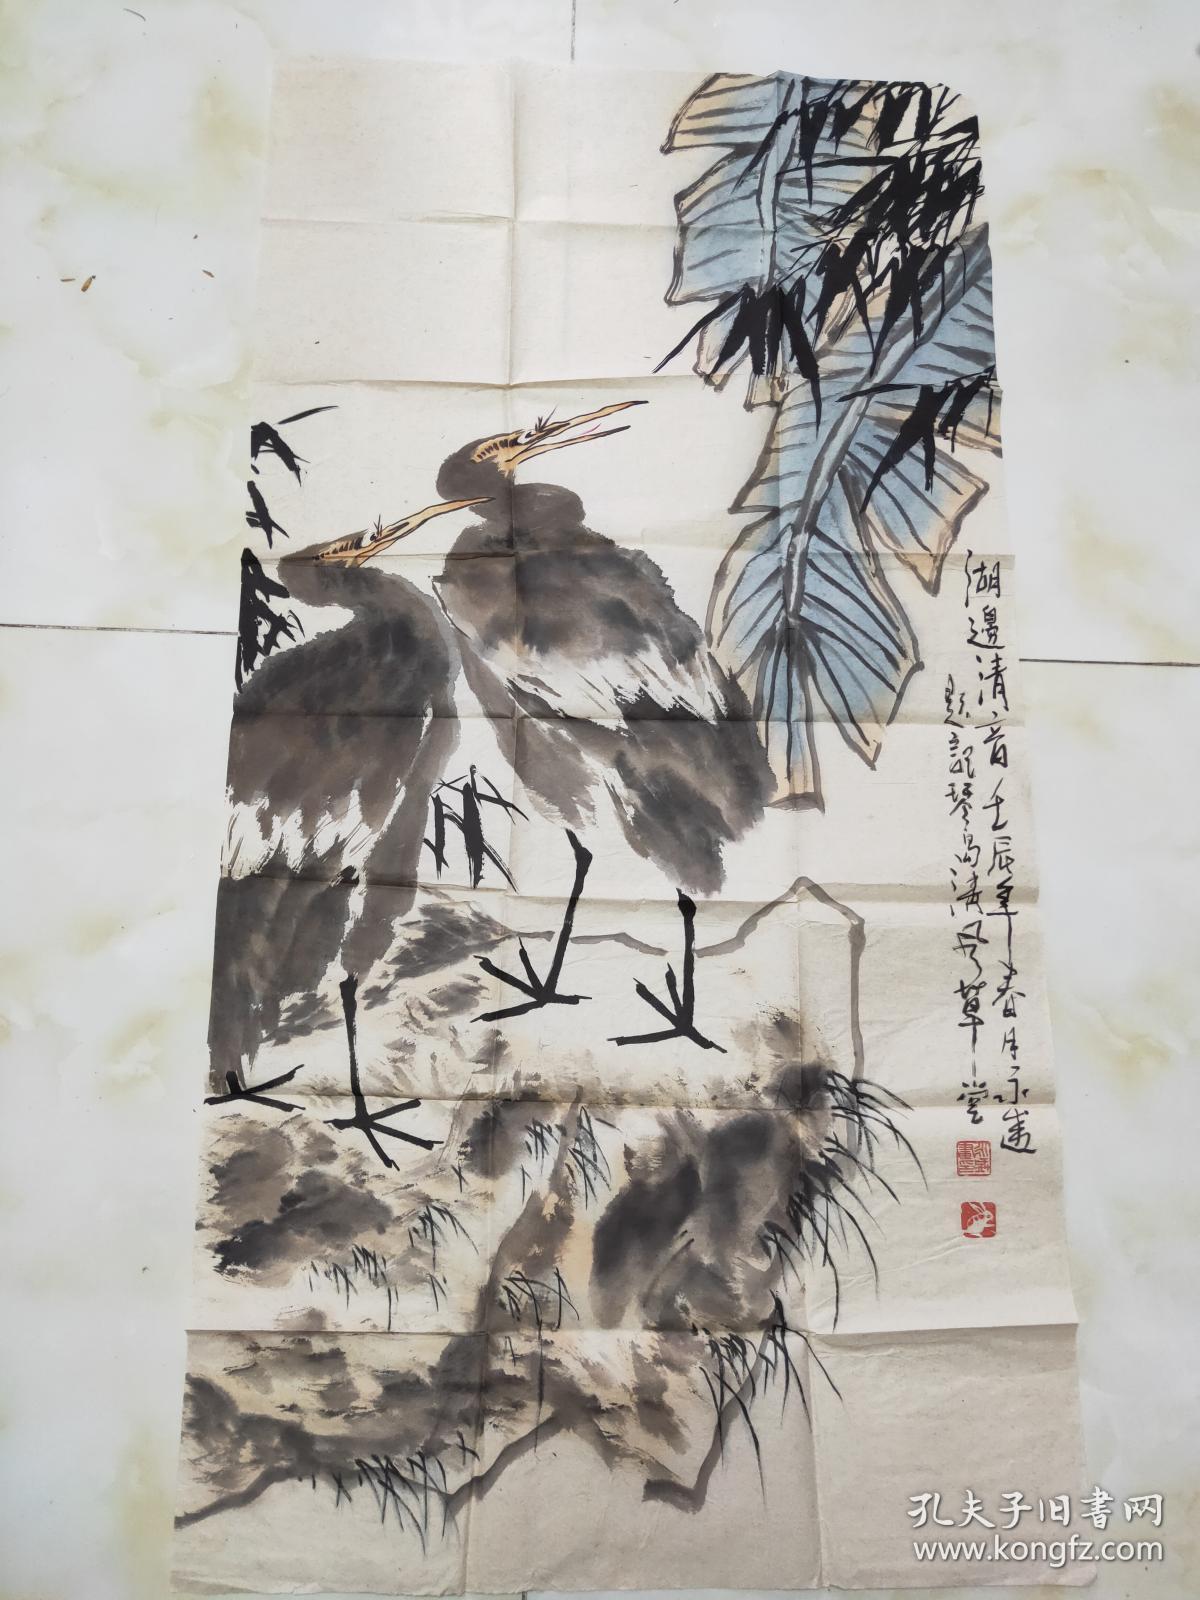 湖邊清音壬辰年春月永
题龍琴島清风草堂
孔夫子旧书网
www.kongfz.com